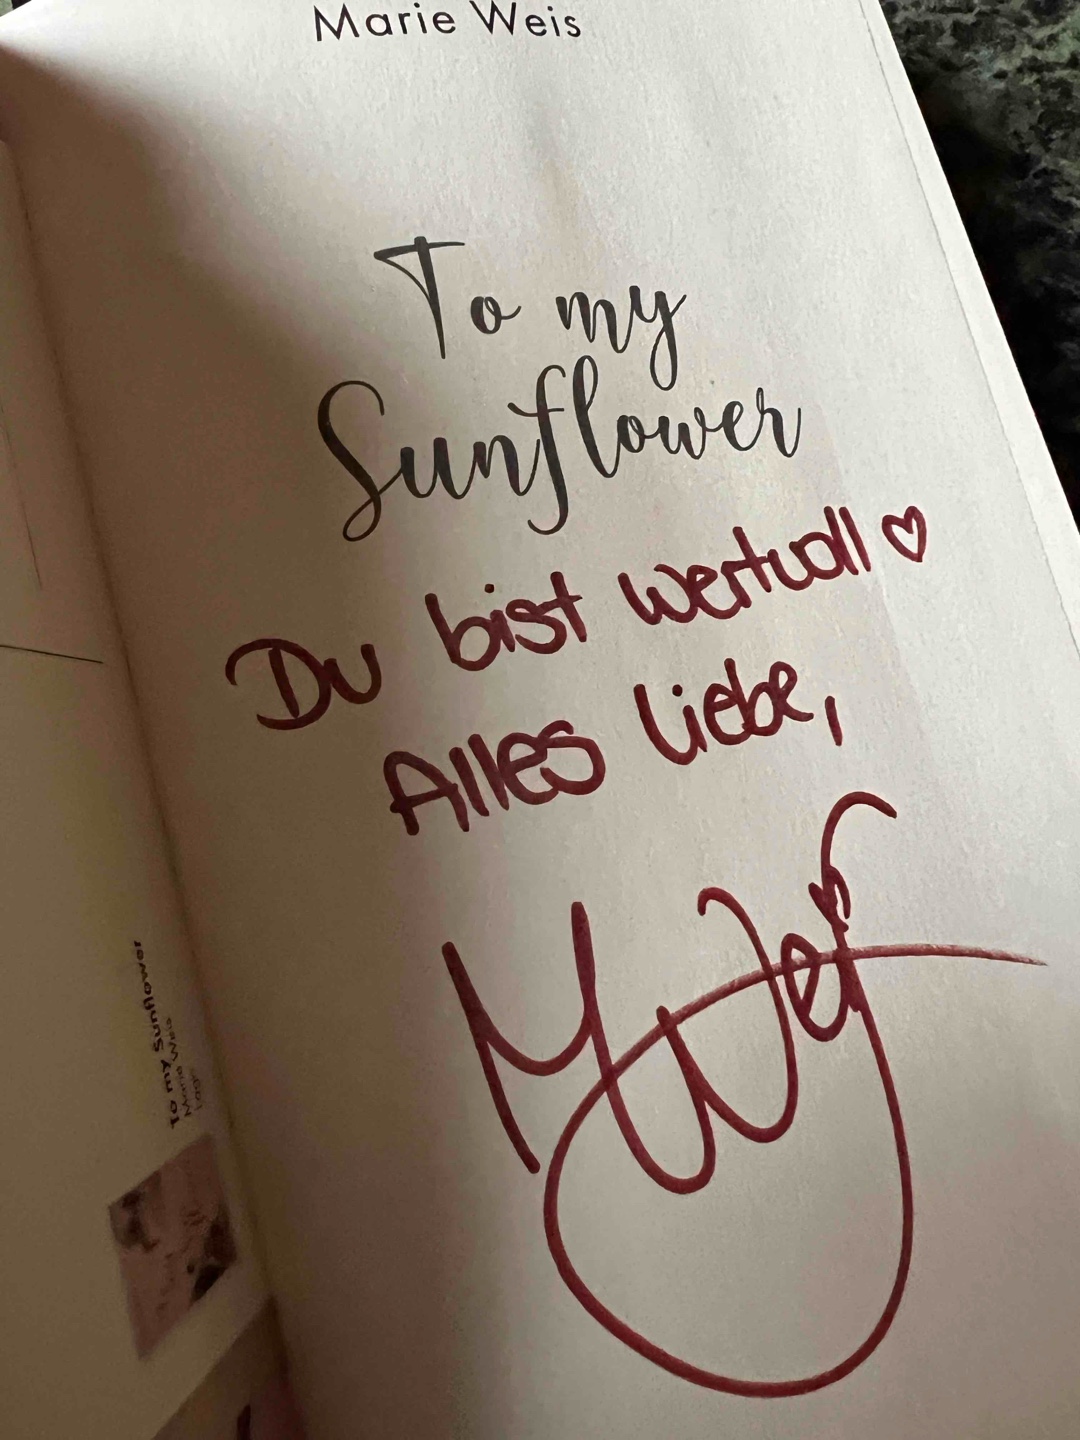 Marie Weis
To my
Sunflower
Du bist wertvoll ♡
Alles Liebe,
M Weis
To my Sunflower
Marie Weis